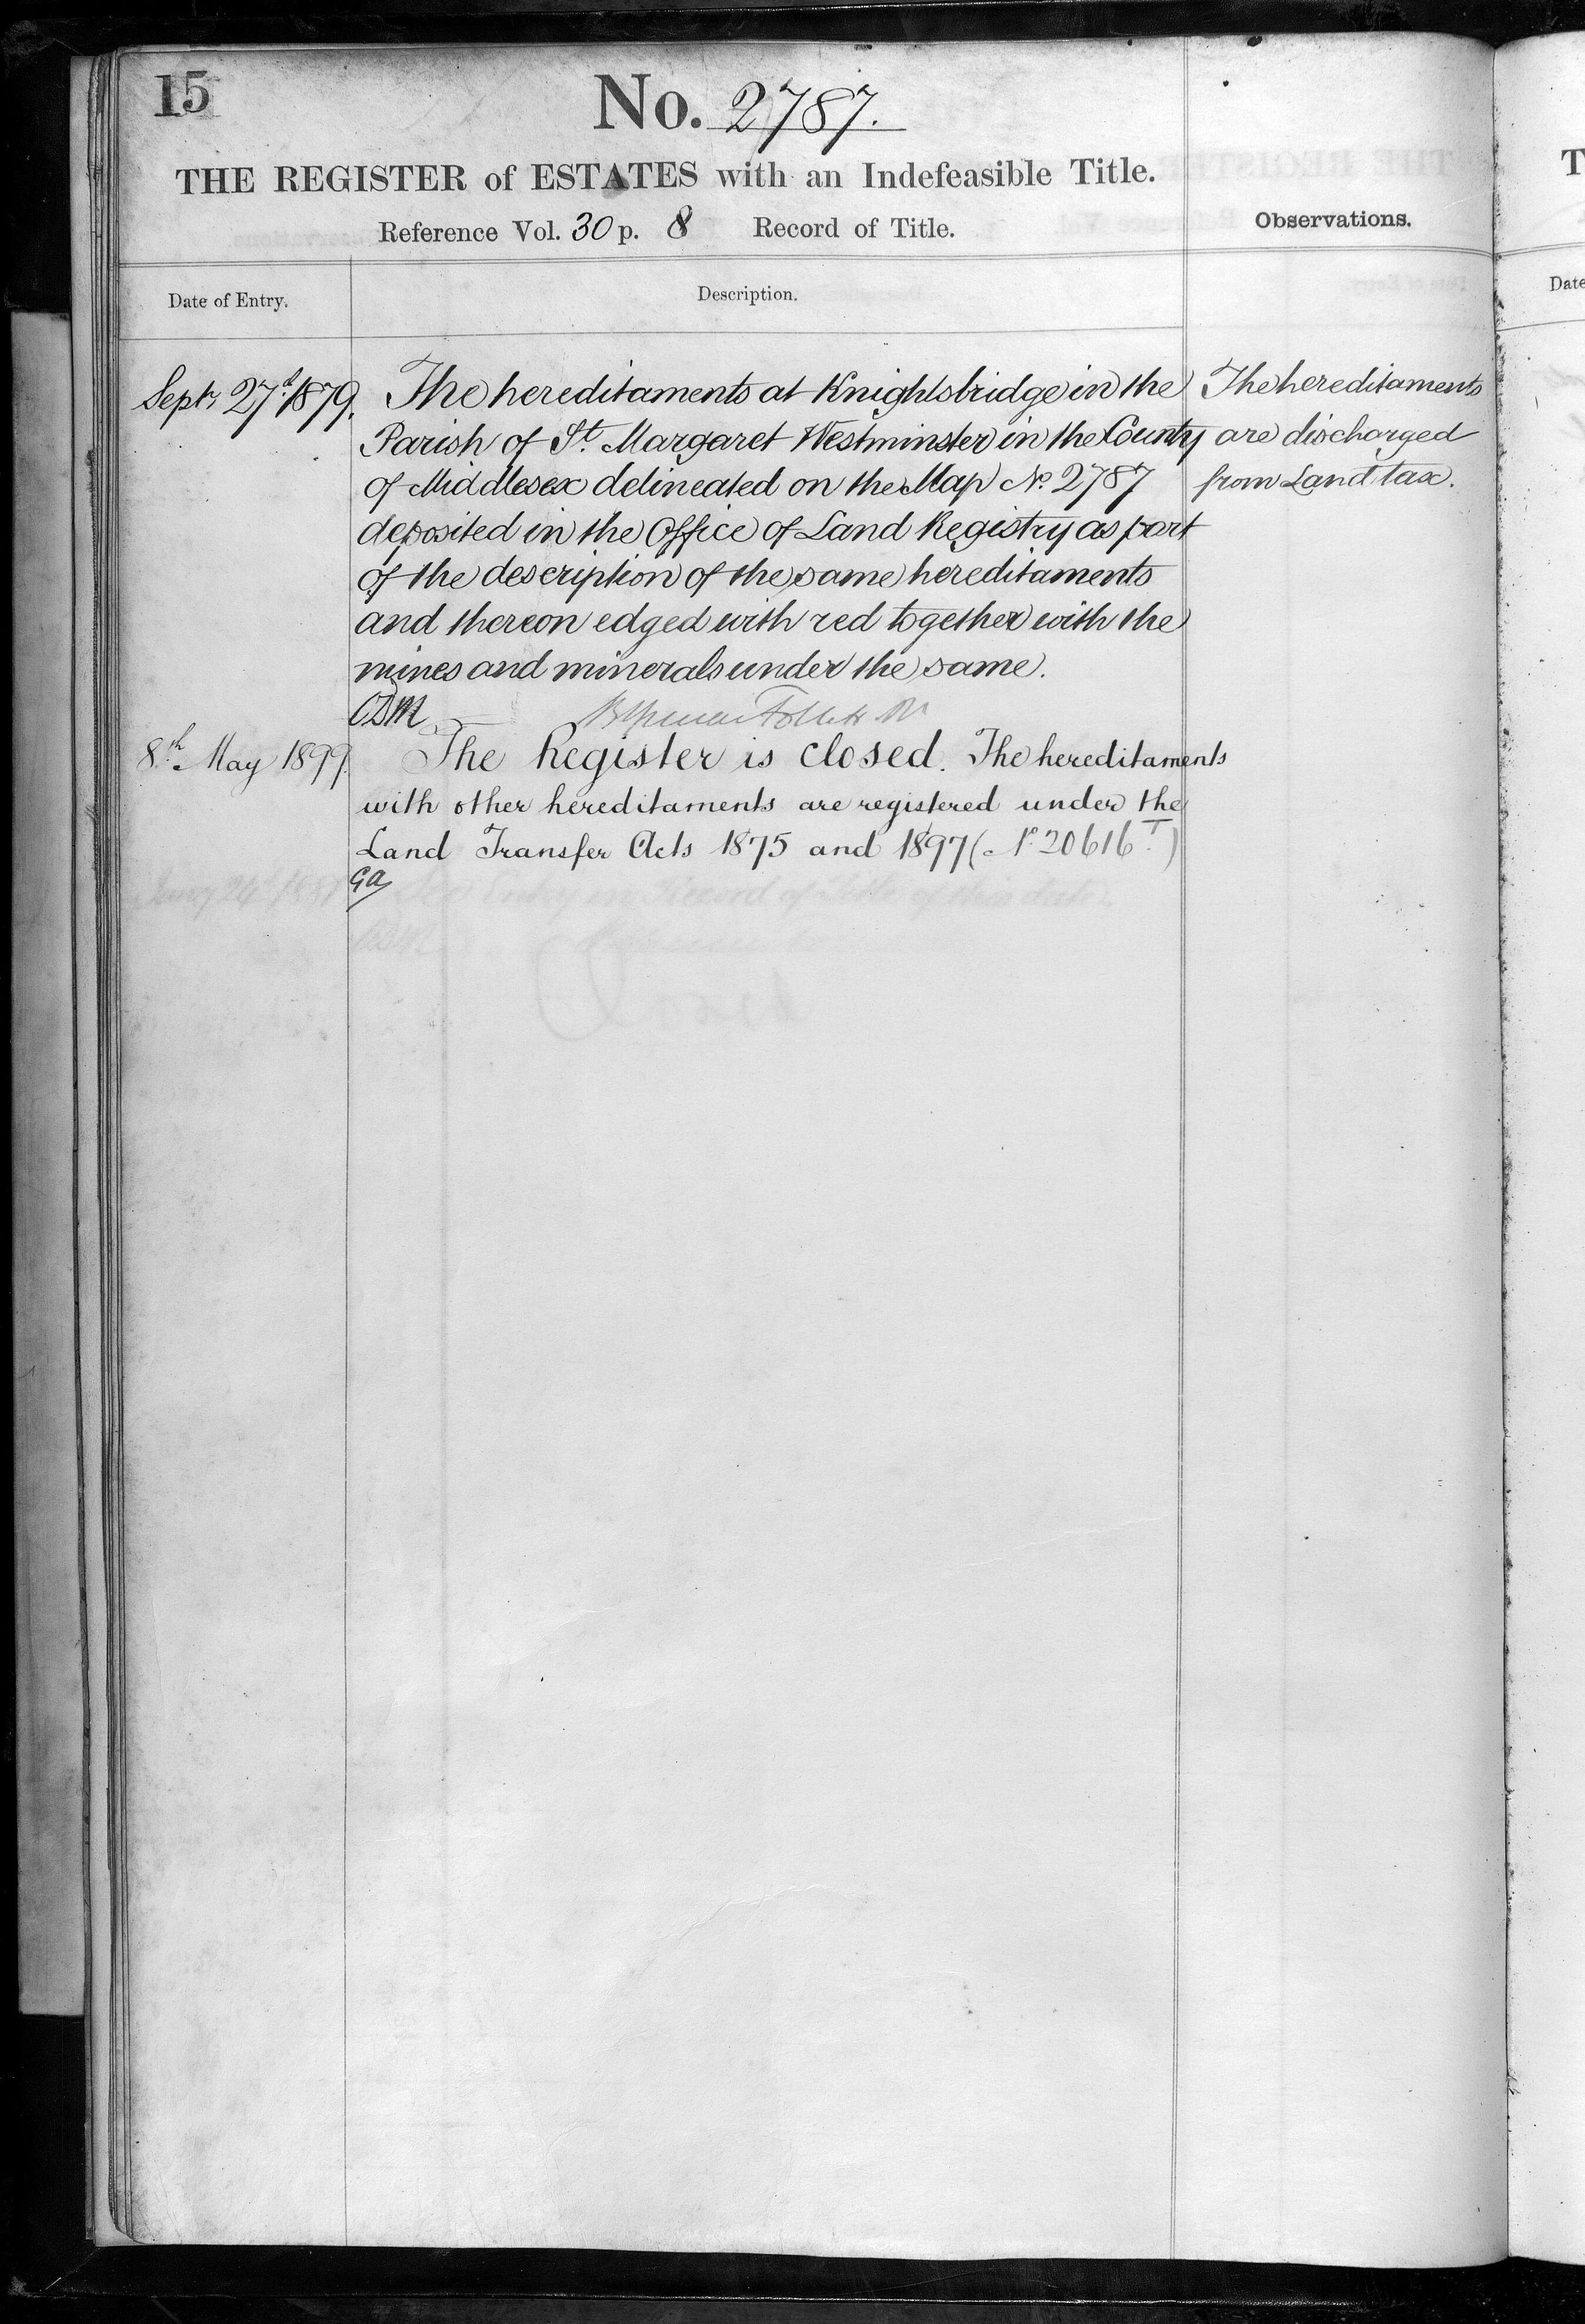 15
No. 2787.
THE REGISTER of ESTATES with an Indefeasible Title.
Reference Vol. 30 p. 8 Record of Title.
Observations.
Date of Entry.
Description.
Sept. 27th 1879.
The hereditaments at Knightsbridge in the
Parish of St. Margaret Westminster in the County
of Middlesex delineated on the Map No. 2787
deposited in the Office of Land Registry as part
of the description of the same hereditaments
and thereon edged with red together with the
mines and minerals under the same.
The hereditaments
are discharged
from Land tax.
8th May 1899.
The Register is closed. The hereditaments
with other hereditaments are registered under the
Land Transfer Acts 1875 and 1897 (No. 20616 T)
GA
See Entry in Record of Title of this date.
T
Date